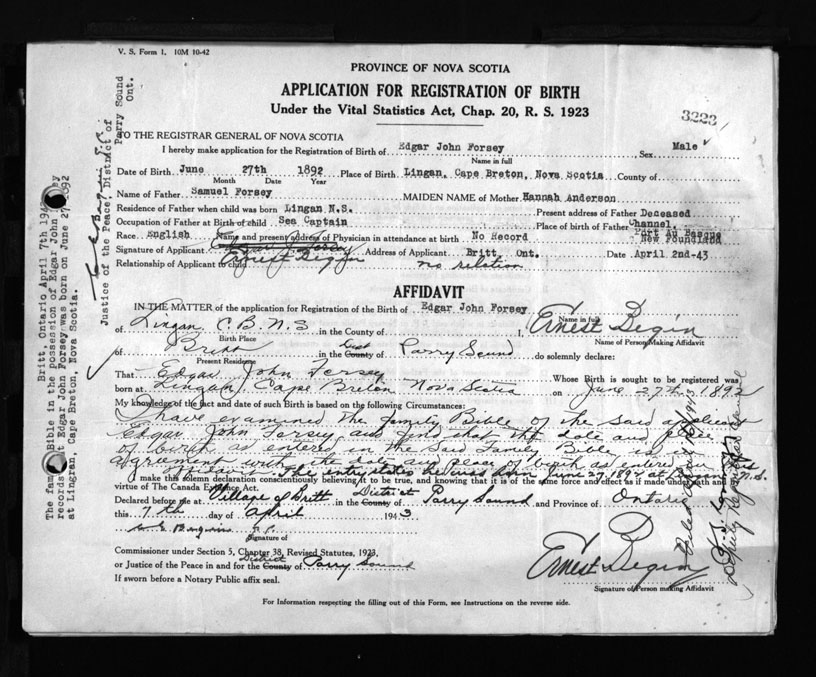 V. S. Form 1. 10M 10-42
PROVINCE OF NOVA SCOTIA
APPLICATION FOR REGISTRATION OF BIRTH
Under the Vital Statistics Act, Chap. 20, R. S. 1923
3223
TO THE REGISTRAR GENERAL OF NOVA SCOTIA
I hereby make application for the Registration of Birth of Edgar John Forsey Sex Male
Name in full
Date of Birth June 27th 1892 Place of Birth Lingan, Cape Breton, Nova Scotia County of
Month Date Year
Name of Father Samuel Forsey MAIDEN NAME of Mother Hannah Anderson
Residence of Father when child was born Lingan N.S. Present address of Father Deceased
Occupation of Father at Birth of child Sea Captain Place of birth of Father Channel,
Port Au Basque
Race English Name and present address of Physician in attendance at birth No Record New Foundland
Signature of Applicant Address of Applicant Britt, Ont. Date April 2nd-43
Ernest Begin
Relationship of Applicant to child no relation
AFFIDAVIT
IN THE MATTER of the application for Registration of Birth of Edgar John Forsey
Name in full
of Lingan C.B.N.S in the County of I, Ernest Begin
Birth Place Name of Person Making Affidavit
of Britt in the County Dist of Parry Sound do solemnly declare:
Present Residence
That Edgar John Forsey Whose Birth is sought to be registered was
born at Lingan, Cape Breton Nova Scotia on June 27th 1892
My knowledge of the fact and date of such Birth is based on the following Circumstances:
I have examined the family Bible of the said applicant
Edgar John Forsey and find that the date and place
of birth as entered in the said Family Bible is in
agreement with the date and place of birth as entered on this
affidavit. The entry states he was born June 27, 1892 at Lingan, N.S.
make this solemn declaration conscientiously believing it to be true, and knowing that it is of the same force and effect as if made under oath and by
virtue of The Canada Evidence Act.
Declared before me at Village of Britt in the County District of Parry Sound and Province of Ontario
this 7th day of April 1943
J.P.
Signature of
Commissioner under Section 5, Chapter 38, Revised Statutes, 1923,
or Justice of the Peace in and for the County District of Parry Sound
Ernest Begin
Signature of Person making Affidavit
If sworn before a Notary Public affix seal.
For Information respecting the filling out of this Form, see Instructions on the reverse side.
Britt, Ontario April 7th 194
The fam Bible in the possession of Edgar John ey
records t Edgar John Forsey was born on June 27 1892
at Lingan, Cape Breton, Nova Scotia.
Justice of the Peace, District of
Parry Sound
Ont.
Deputy Registrar General